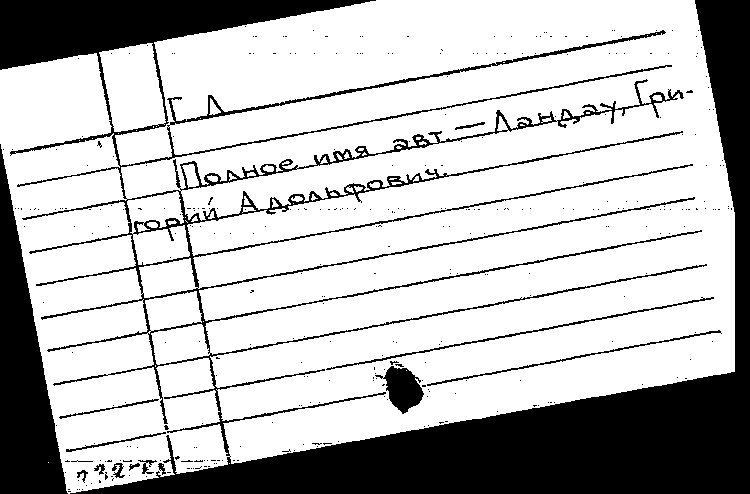 Г Л
Полное имя авт. — Ландау, Гри-
горий Адольфович.